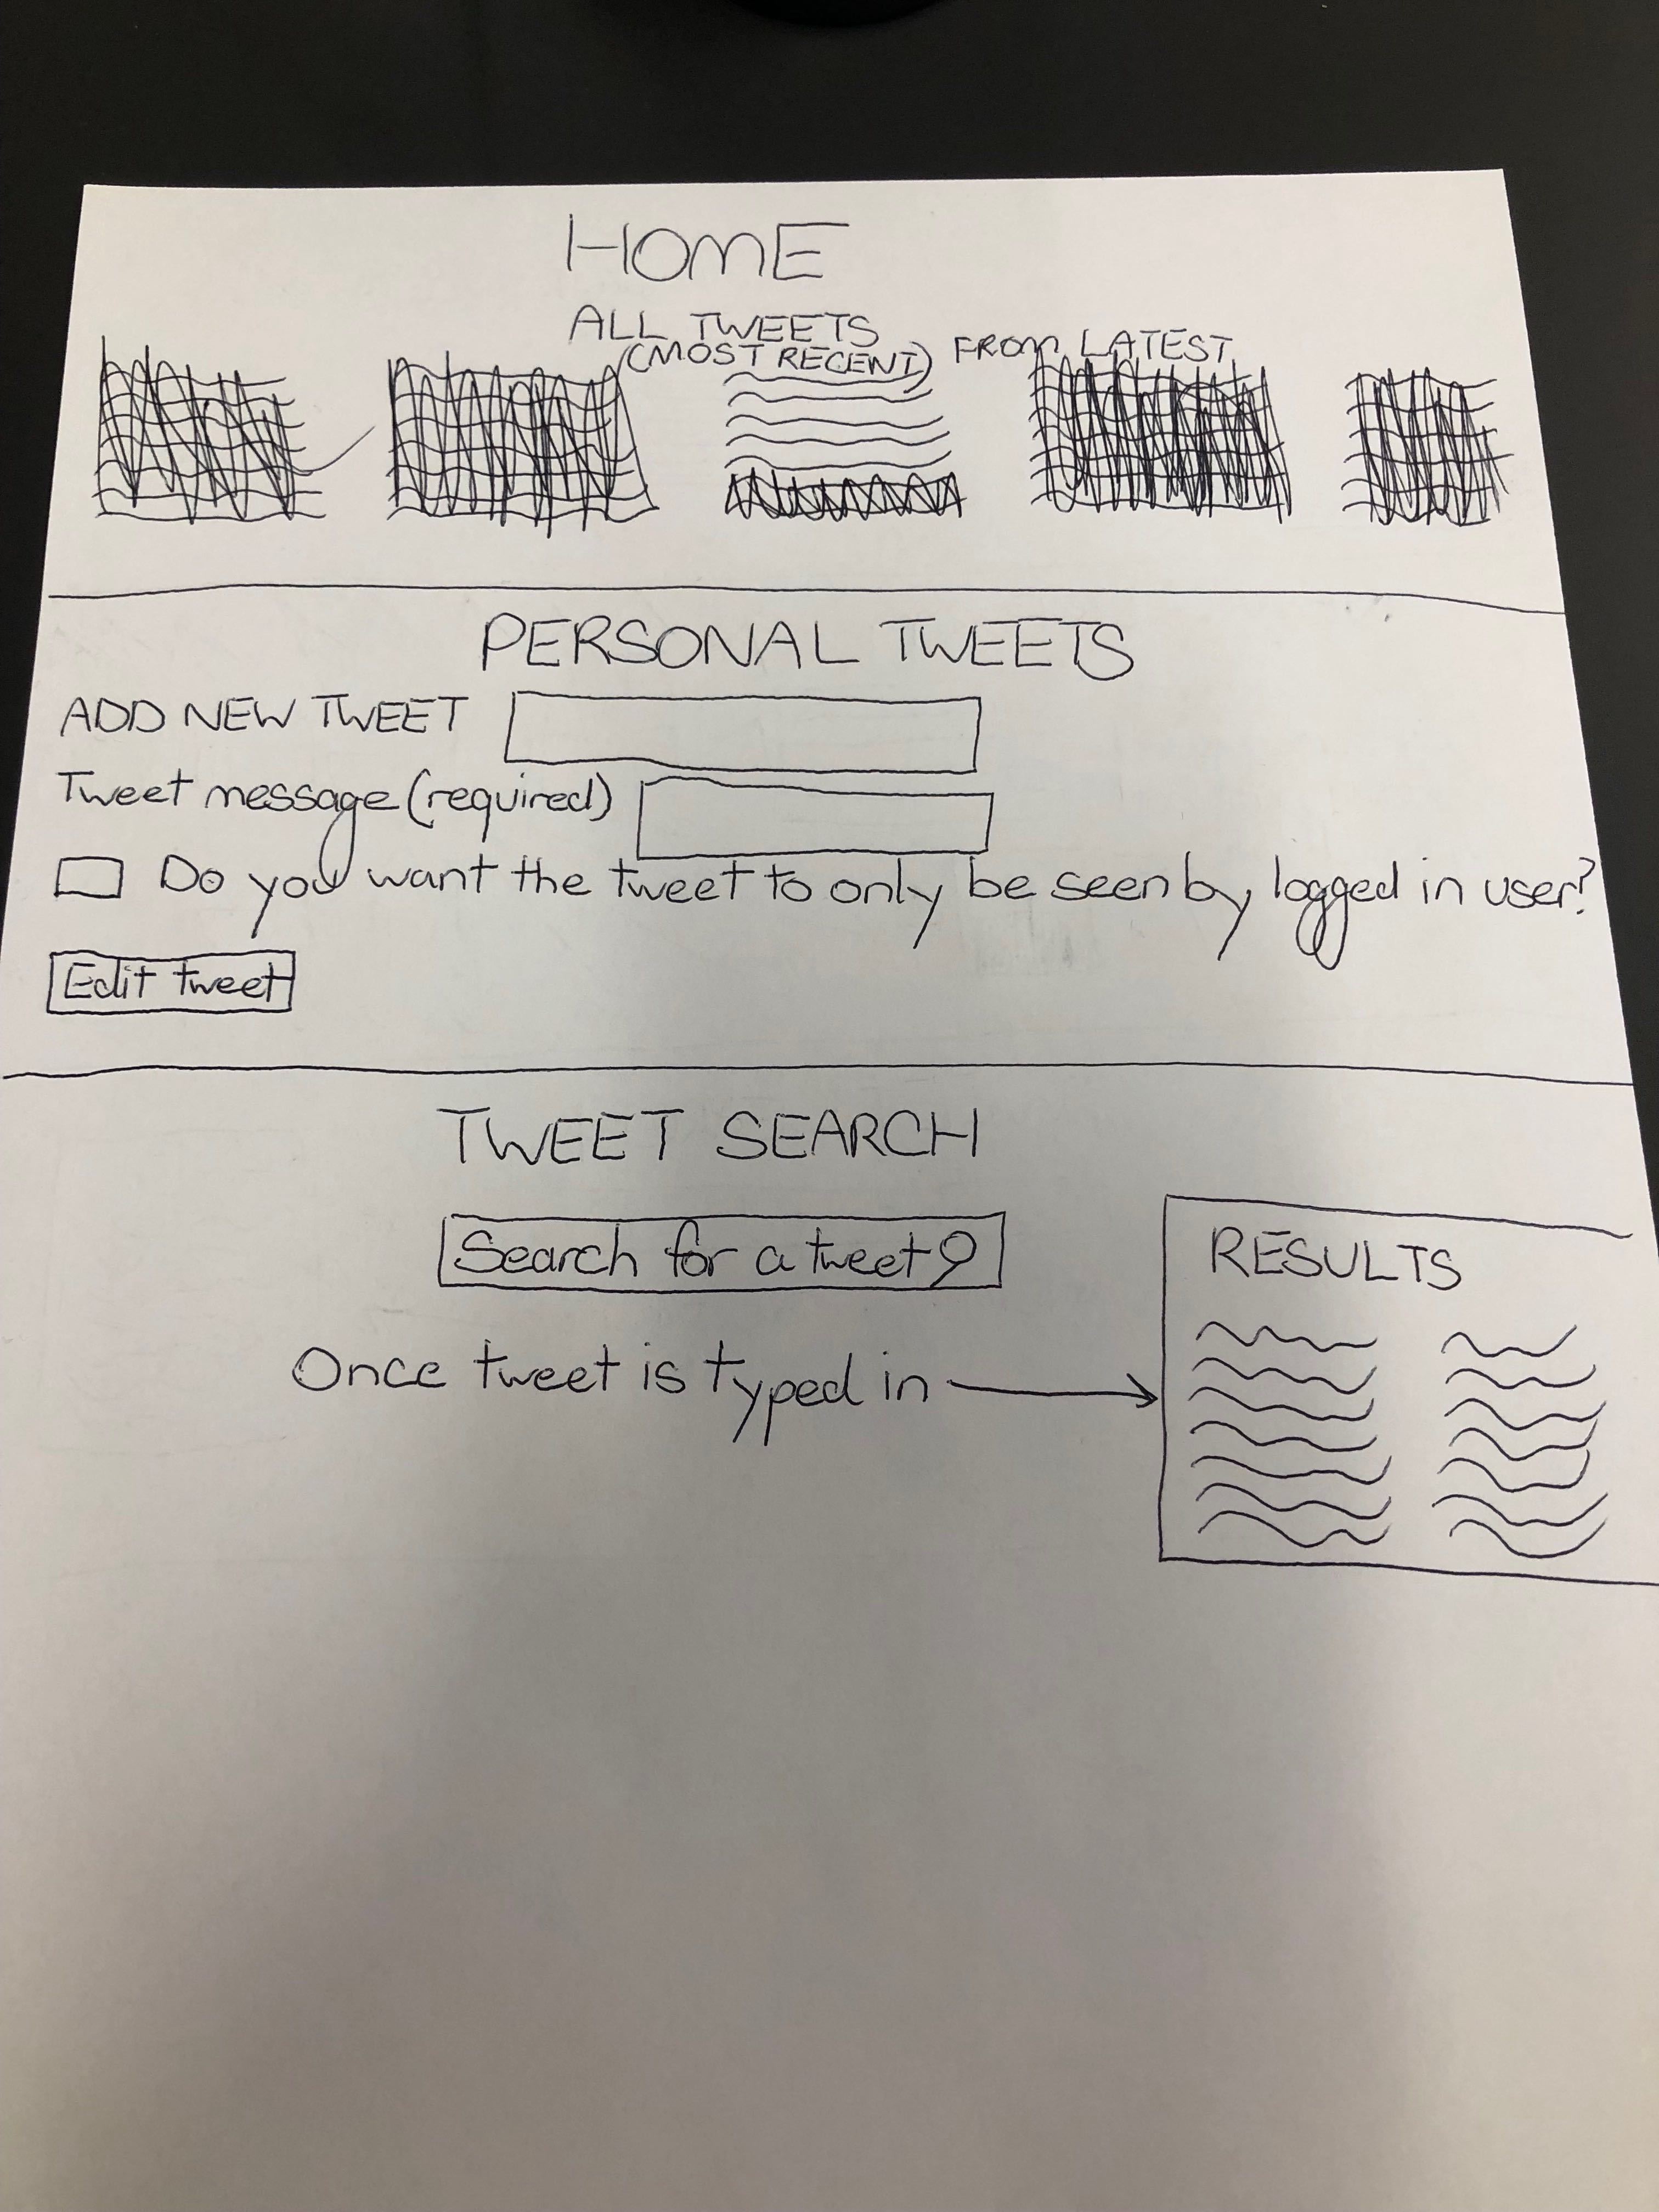 HOME
ALL TWEETS
(MOST RECENT) FROM LATEST
PERSONAL TWEETS
ADD NEW TWEET
Tweet message (required)
Do you want the tweet to only be seen by logged in user?
Edit tweet
TWEET SEARCH
Search for a tweet
RESULTS
Once tweet is typed in